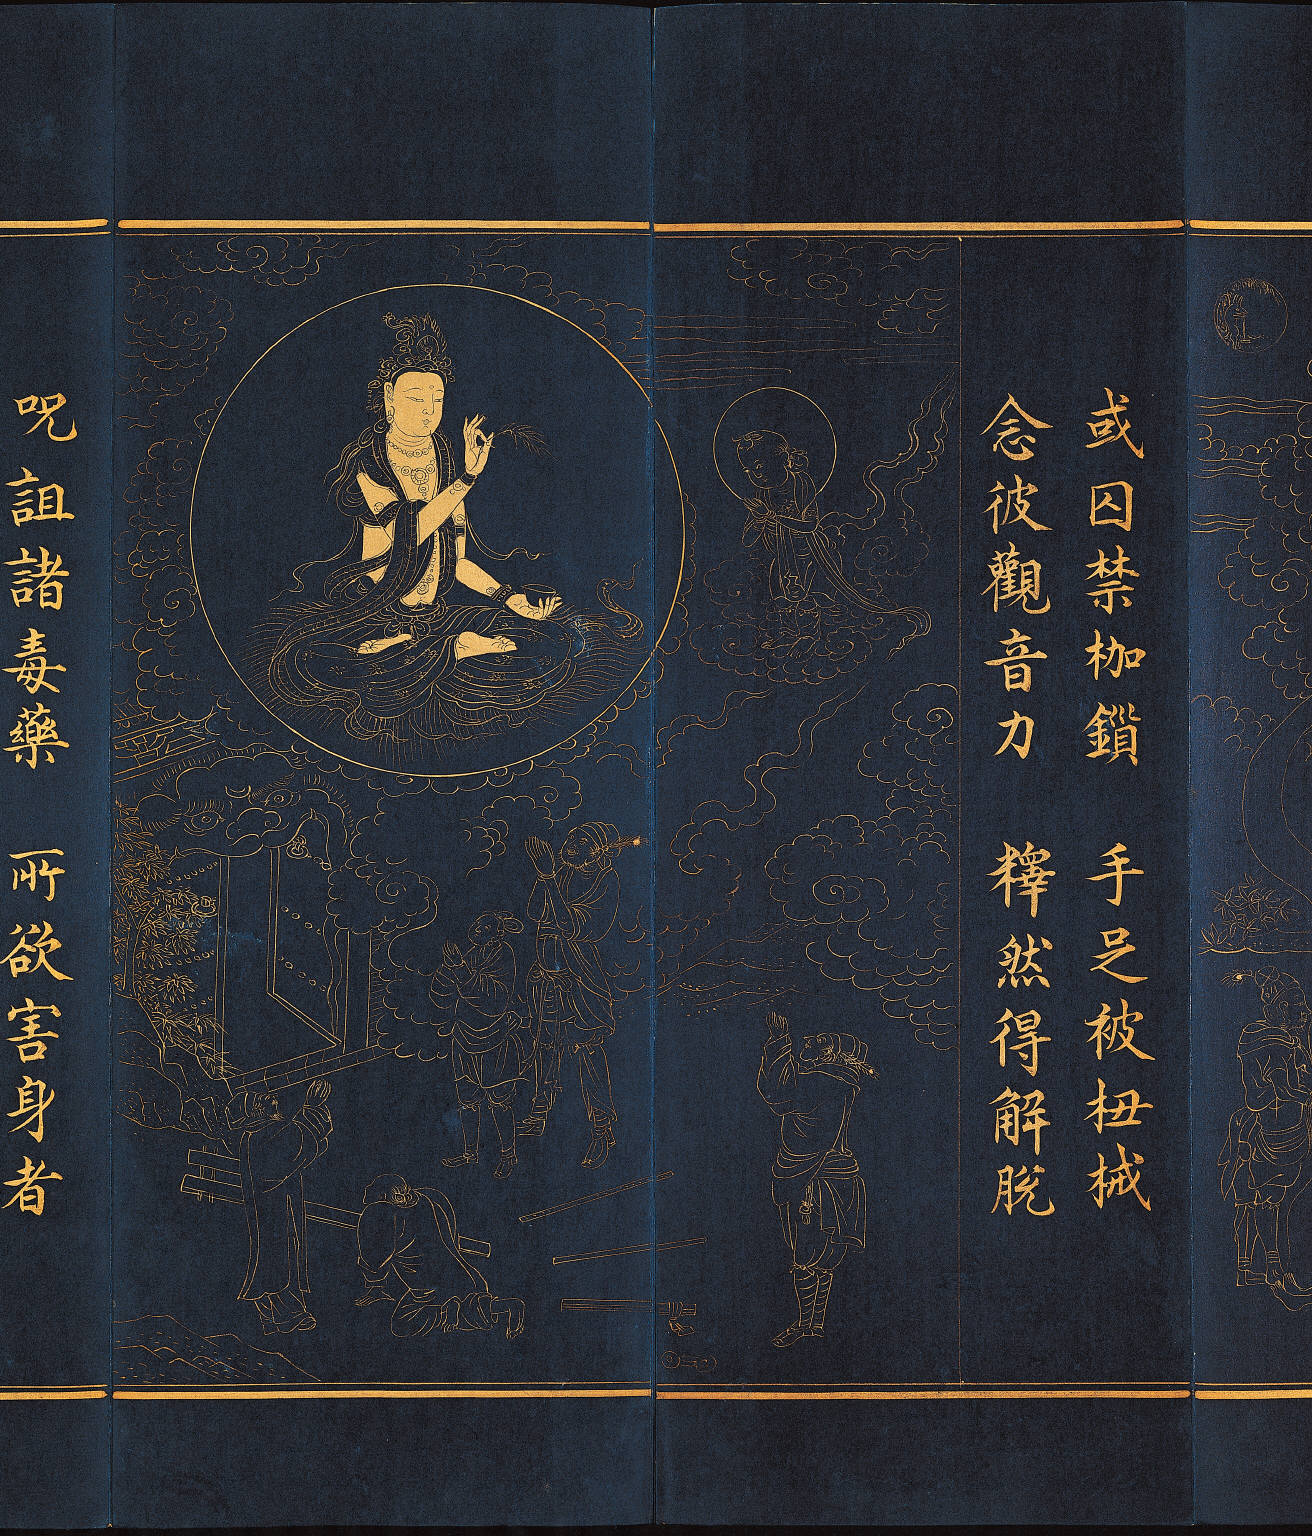 或囚禁枷鎖 手足被杻械
念彼觀音力 釋然得解脫
呪詛諸毒藥 所欲害身者